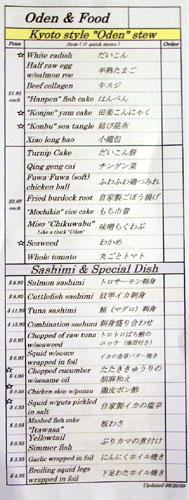 Oden & Food
Kyoto style "Oden" stew
Price Item (® quick menu) Order
☆ White radish だいこん
Half raw egg w/salmon roe 半熟たまご
$1.95 each
Beef collagen 牛スジ
☆ "Hanpen" fish cake はんぺん
☆ "Konjac" yam cake 田楽こんにゃく
☆ "Konbu" sea tangle 結び昆布
Xiao long bao 小籠包
Turnip Cake だいこん餅
Qing geng cai チンゲン菜
Fuwa Fuwa (soft) chicken ball ふわふわ鶏つみれ
$2.80 each
Fried burdock root 自家製ごぼう揚げ
"Mochikin" rice cake もち巾着
Miso "Chikuwabu" 味噌ちくわぶ
Like a thick "Udon"
☆ Seaweed わかめ
Whole tomato 丸ごとトマト
Sashimi & Special Dish
Salmon sashimi トロサーモン刺身
Cuttlefish sashimi 紋甲イカ刺身
Tuna sashimi 鮪（マグロ）刺身
Combination sashimi 刺身盛り合わせ
Chopped of raw tuna w/seaweed トロトロばち鮪の
Squid w/sauce wrapped in foil イカの香草バター焼き
☆ Chopped cucumber w/sesame oil たたききゅうりの胡麻和え
☆ Chicken skin w/ponzu 鶏皮ポン酢
☆ Squid w/guts pickled in salt 自家製イカの塩辛
Mashed fish cake "Itawasa" 板わさ
Yellowtail Simmer fish ぶりカマの煮付け
Garlic wrapped in foil にんにくホイル焼き
Broiling squid legs wrapped in foil 下足わたホイル焼き
Updated 09/26/09